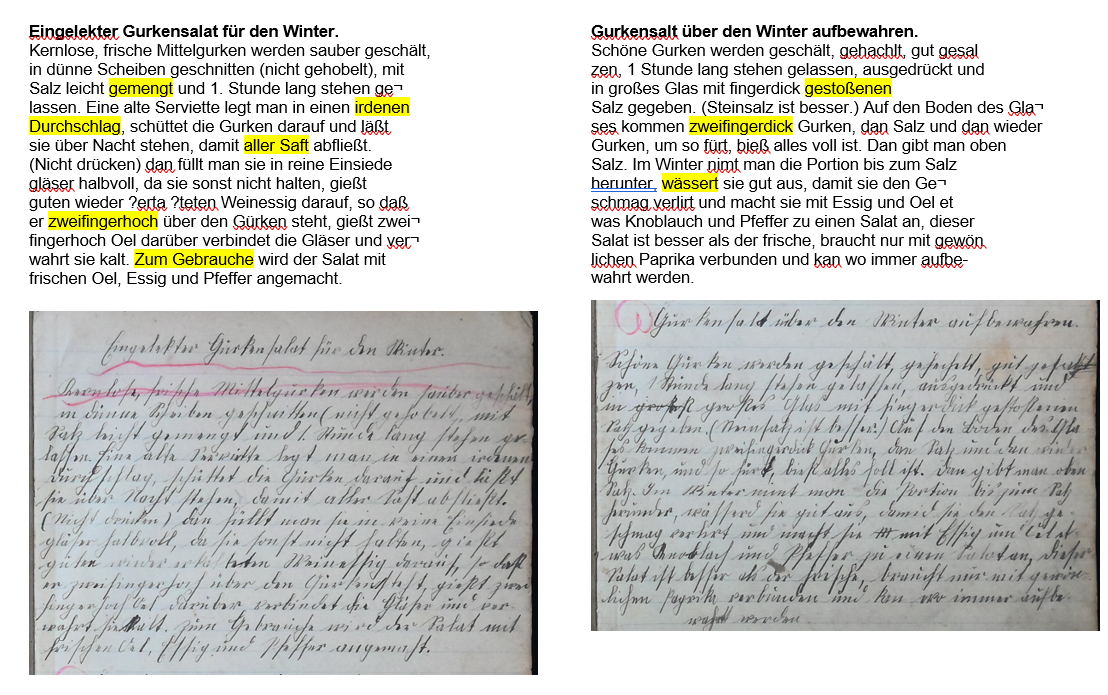 Eingelekter Gurkensalat für den Winter.
Kernlose, frische Mittelgurken werden sauber geschält,
in dünne Scheiben geschnitten (nicht gehobelt), mit
Salz leicht gemengt und 1. Stunde lang stehen ge¬
lassen. Eine alte Serviette legt man in einen irdenen
Durchschlag, schüttet die Gurken darauf und läßt
sie über Nacht stehen, damit aller Saft abfließt.
(Nicht drücken) dan füllt man sie in reine Einsiede
gläser halbvoll, da sie sonst nicht halten, gießt
guten wieder ?erta ?teten Weinessig darauf, so daß
er zweifingerhoch über den Gürken steht, gießt zwei¬
fingerhoch Oel darüber verbindet die Gläser und ver¬
wahrt sie kalt. Zum Gebrauche wird der Salat mit
frischen Oel, Essig und Pfeffer angemacht.
Eingelekter Gürkensalat für den Winter.
Kernlose, frische Mittelgürken werden sauber geschält,
in dünne Scheiben geschnitten (nicht gehobelt), mit
Salz leicht gemengt und 1. Stunde lang stehen ge-
lassen. Eine alte Serviette legt man in einen irdenen
Dürchschlag, schüttet die Gürken darauf und läßt
sie über Nacht stehen, damit aller Saft abfließt.
(Nicht drücken) dan füllt man sie in reine Einsiede
gläser halbvoll, da sie sonst nicht halten, gießt
guten wieder Weinessig darauf, so daß
er zweifingerhoch über den Gürken steht, gießt zwei
fingerhoch Oel darüber verbindet die Gläser und ver-
wahrt sie kalt. Zum Gebrauche wird der Salat mit
frischen Oel, Essig und Pfeffer angemacht.
Gurkensalt über den Winter aufbewahren.
Schöne Gurken werden geschält, gehachlt, gut gesal
zen, 1 Stunde lang stehen gelassen, ausgedrückt und
in großes Glas mit fingerdick gestoßenen
Salz gegeben. (Steinsalz ist besser.) Auf den Boden des Gla¬
ses kommen zweifingerdick Gurken, dan Salz und dan wieder
Gurken, um so fürt, bieß alles voll ist. Dan gibt man oben
Salz. Im Winter nimt man die Portion bis zum Salz
herunter, wässert sie gut aus, damit sie den Ge¬
schmag verlirt und macht sie mit Essig und Oel et
was Knoblauch und Pfeffer zu einen Salat an, dieser
Salat ist besser als der frische, braucht nur mit gewön
lichen Paprika verbunden und kan wo immer aufbe-
wahrt werden.
Gürkensalt über den Winter aufbewahren.
Schöne Gürken werden geschält, gut
zen, 1 Stunde lang stehen gelassen, ausgedrückt und
in großes Glas mit fingerdick gestoßenen
Salz gegeben. (Steinsalz ist besser.) Auf den Boden des Gla
ses kommen zweifingerdick Gürken, dan Salz und dan wieder
Gürken, und so fürt, bieß alles foll ist. Dan gibt man oben
Salz. Im Winter nimt man die Portion bis zum Salz
herunder, wässerd sie gut aus, damid sie den ge-
schmag verlirt und macht sie mit Essig um Oel et
was Knoblach und Pfeffer zu einen Salat an, dieser
Salat ist besser als der frische, braucht nur mit gewön-
lichen Paprika verbunden und kan wo immer aufbe-
wahrt werden.